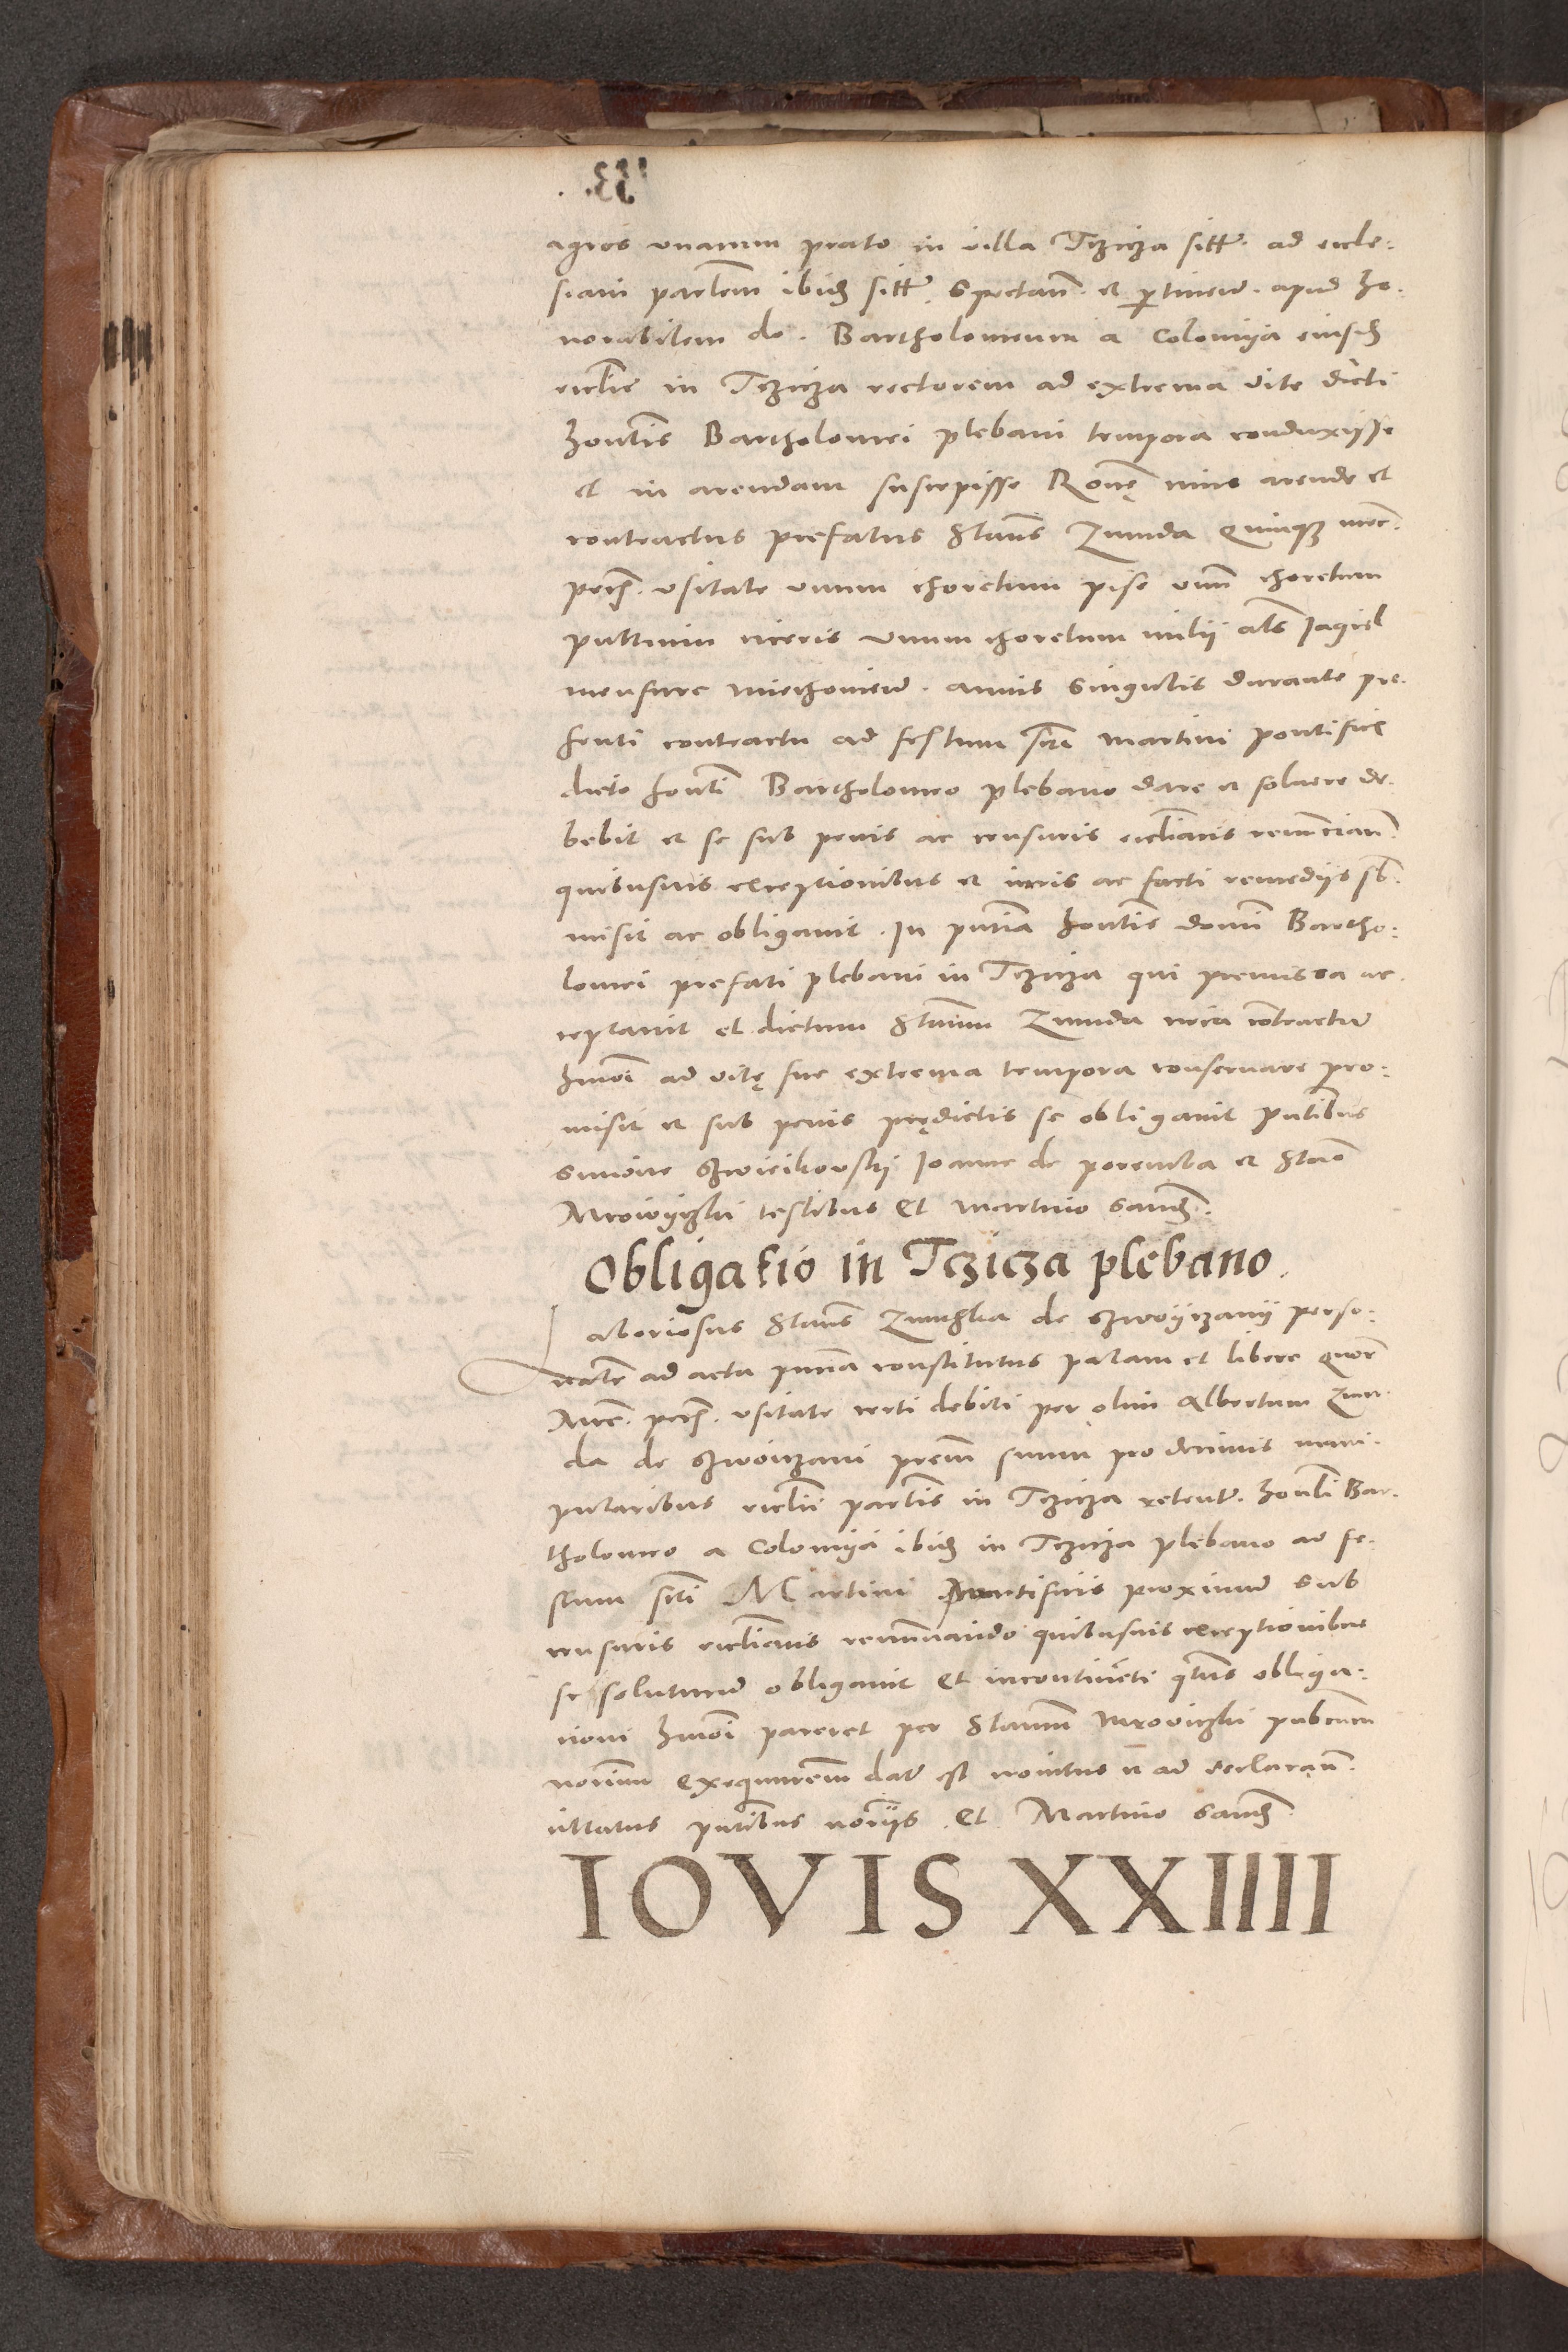 agros unacum prato in villa Tczicza sitt. ad eccle:
siam parlem ibid sitt. Spectan. et ptinen. apud ho.
norabilem do. Bartholomeum a Colomija eiusd
ecclie in Tczicza rectorem ad extrema vite dicti
honlis Bartholomei plebani tempora conduxisse
et in arendam suscepisse Rone cuius arende et
contractus prefatus Stans Zmuda quinqz mrc.
pecn. usitate unum choretum pise unu choretum
pultium ciceris unum choretum milij als Jagiel
mensure miechovien. annis singulis durante pre.
senti contractu ad festum sti Martini pontificis
dicto honli Bartholomeo plebano dare et solvere de.
bebit et se sub penis ac censuris ecclianis renuncian.
quibusvis exceptionibus et iuris ac facti remedijs sb.
misit ac obligavit. In pntia honlis domi Bartho:
lomei prefati plebani in Tczicza qui premissa ac.
ceptavit et dictum Stanum Zmuda circa contractum
hmoi ad vite sue extrema tempora conservare pro:
misit et sub penis predictis se obligavit pntibus
Simone Joanne de poremba et Stao
testibus Et Martino
Obligatio in Tczicza plebano.
Laboriosus Stans de perso:
naliter ad acta pntia constitutus palam et libere quor
Mrc. pecn. usitate certi debiti per olim Albertum Zmu.
da de prem suum pro decimis mani.
pularibus ecclie parlis in Tczicza retent. honli Bar.
tholomeo a Colomija ibid in Tczicza plebano ad fe.
stum sti Martini Pontificis proximum sub
censuris ecclianis renunciando quibusvis exceptionibus
se soluturum obligavit Et incontineti qtus obliga:
tioni hmoi pareret per Stanum
norium exequutem dat est monitus n ad declaran.
citatus pntibus norijs. Et Martino
IOVIS XXIIII